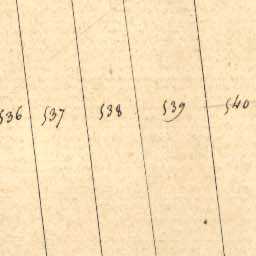 536 537 538 539 540